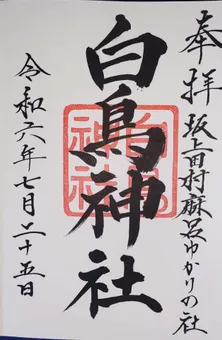 奉拝
坂上田村麻呂ゆかりの社
白鳥神社
白鳥
神社
令和六年七月二十五日